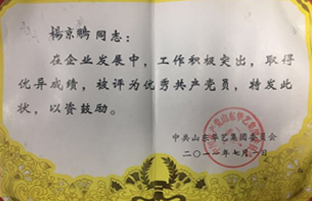 楊京鹏同志：
在企业发展中，工作积极突出，取得
优异成绩，被评为优秀共产党员，特发此
状，以资鼓励。
中共山东华艺集团委员会
二〇一一年七月一日